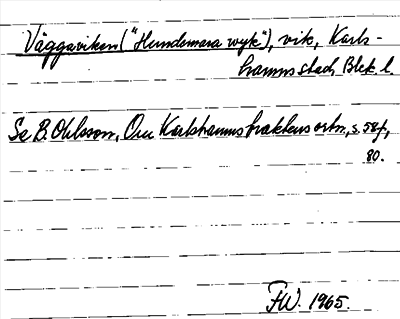 Väggaviken ("Hundsmara wyk"), vik, Karls-
hamns stad, Blek. l.
Se B. Ohlsson, Om Karlshamnstraktens ortn., s. 58 f,
80.
FW. 1965.